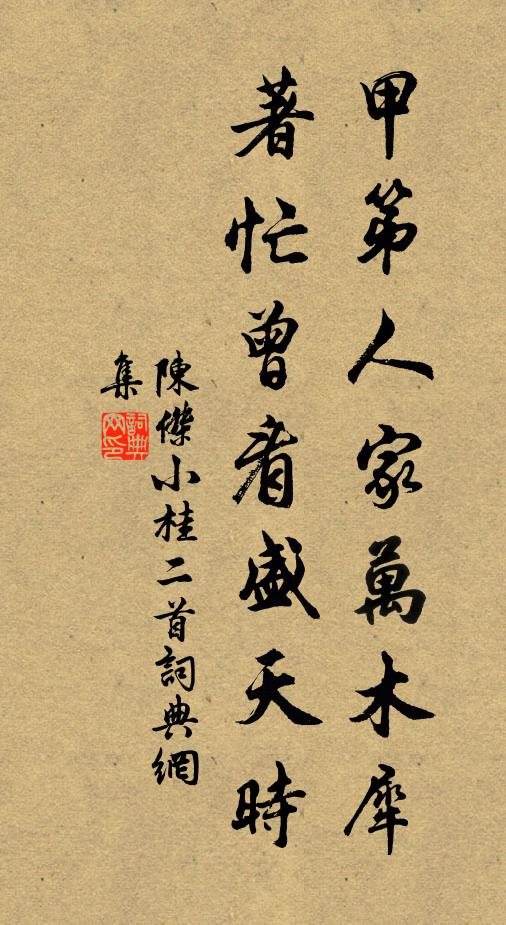 甲第人家萬木犀
著忙曾看盛天時
陳傑小桂二首詞典網
集
詞典
网印